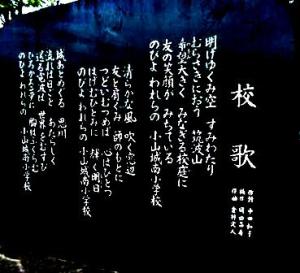 校歌
明けゆくみ空 すみわたり
むらさきにおう 筑波山
希望大きく みなぎる校庭に
友の笑顔が みちている
のびよ われらの 小山城南小学校
清らかな風 吹く窓辺
友と肩くみ 師のもとに
つどい むつめば 心はひとつ
はげむひとみに 輝く明日
のびよ われらの 小山城南小学校
城あとめぐる 思川
流れは日ごと あたらしく
世界とむすび
胸はふくらむ
のびよ われらの 小山城南小学校